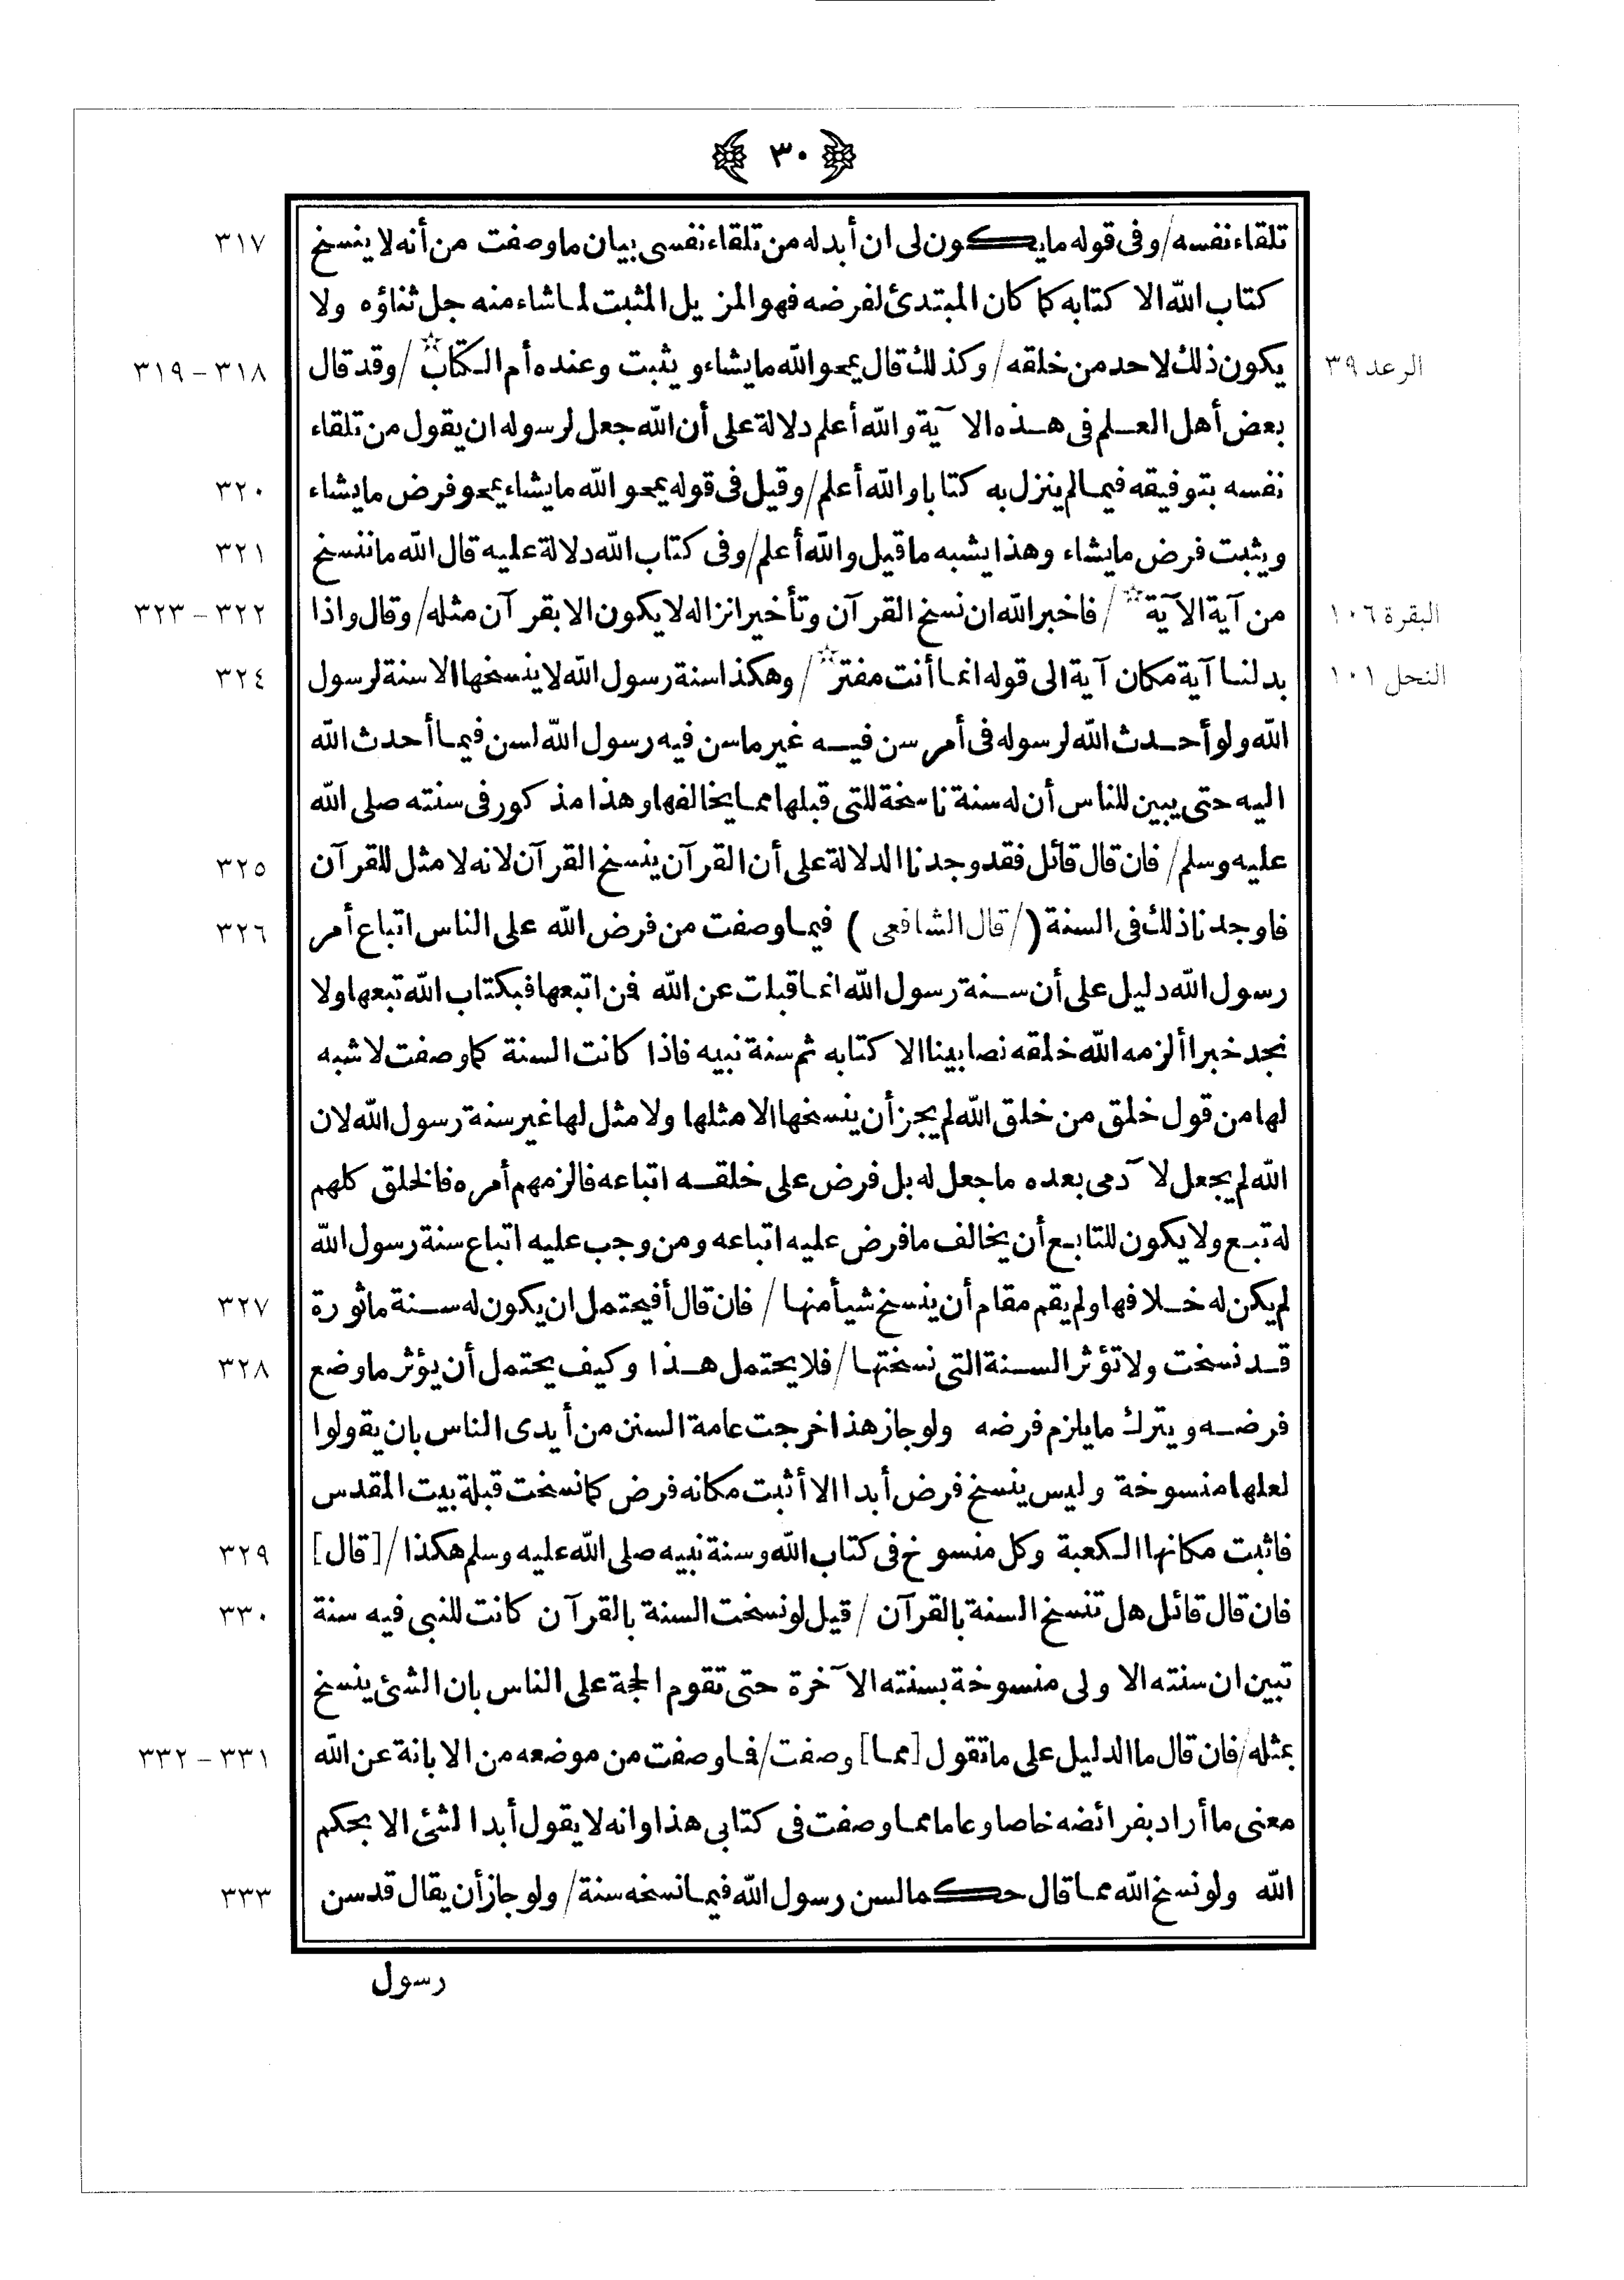 ﴿ ٣٠ ﴾
تلقاء نفسه/ وفى قوله مايكون لى ان أبدله من تلقاء نفسى بيان ماوصفت من أنه لا ينسخ ٣١٧
كتاب الله الا كتابه كما كان المبتدئ لفرضه فهو المزيل المثبت لما شاء منه جل ثناؤه ولا
الرعد ٣٩ يكون ذلك لاحد من خلقه/ وكذلك قال يمحو الله مايشاء ويثبت وعنده أم الكتاب☆/ وقد قال ٣١٨ – ٣١٩
بعض أهل العلم فى هذه الآية والله أعلم دلالة على أن الله جعل لرسوله ان يقول من تلقاء
نفسه بتوفيقه فيما لم ينزل به كتابا والله أعلم/ وقيل فى قوله يمحو الله مايشاء يمحو فرض مايشاء ٣٢٠
ويثبت فرض مايشاء وهذا يشبه ماقيل والله أعلم/ وفى كتاب الله دلالة عليه قال الله ماننسخ ٣٢١
البقرة ١٠٦ من آية الآية☆/ فاخبر الله ان نسخ القرآن وتأخير انزاله لا يكون الا بقرآن مثله/ وقال واذا ٣٢٢ – ٣٢٣
النحل ١٠١ بدلنا آية مكان آية الى قوله انما أنت مفتر☆/ وهكذا سنة رسول الله لا ينسخها الا سنة لرسول ٣٢٤
الله ولو أحدث الله لرسوله فى أمر سن فيه غير ماسن فيه رسول الله لسن فيما أحدث الله
اليه حتى يبين للناس أن له سنة ناسخة للتى قبلها مما يخالفها وهذا مذكور فى سنته صلى الله
عليه وسلم/ فان قال قائل فقد وجدنا الدلالة على أن القرآن ينسخ القرآن لانه لا مثل للقرآن ٣٢٥
فاوجدنا ذلك فى السنة (/ قال الشافعى ) فيما وصفت من فرض الله على الناس اتباع أمر ٣٢٦
رسول الله دليل على أن سنة رسول الله انما قبلت عن الله فمن اتبعها فبكتاب الله تبعها ولا
نجد خبرا ألزمه الله خلقه نصا بينا الا كتابه ثم سنة نبيه فاذا كانت السنة كما وصفت لا شبه
لها من قول خلق من خلق الله لم يجز أن ينسخها الا مثلها ولا مثل لها غير سنة رسول الله لان
الله لم يجعل لآدمى بعده ماجعل له بل فرض على خلقه اتباعه فالزمهم أمره فالخلق كلهم
له تبع ولا يكون للتابع أن يخالف مافرض عليه اتباعه ومن وجب عليه اتباع سنة رسول الله
لم يكن له خلافها ولم يقم مقام أن ينسخ شيأ منها/ فان قال أفيحتمل ان يكون له سنة ماثورة ٣٢٧
قد نسخت ولا تؤثر السنة التى نسختها/ فلا يحتمل هذا وكيف يحتمل أن يؤثر ماوضع ٣٢٨
فرضه ويترك مايلزم فرضه ولو جاز هذا خرجت عامة السنن من أيدى الناس بان يقولوا
لعلها منسوخة وليس ينسخ فرض أبدا الا أثبت مكانه فرض كما نسخت قبلة بيت المقدس
فاثبت مكانها الكعبة وكل منسوخ فى كتاب الله وسنة نبيه صلى الله عليه وسلم هكذا/ [قال] ٣٢٩
فان قال قائل هل تنسخ السنة بالقرآن/ قيل لو نسخت السنة بالقرآن كانت للنبى فيه سنة ٣٣٠
تبين ان سنته الاولى منسوخة بسنته الآخرة حتى تقوم الحجة على الناس بان الشئ ينسخ
بمثله/ فان قال ما الدليل على ماتقول [مما] وصفت/ فما وصفت من موضعه من الابانة عن الله ٣٣١ – ٣٣٢
معنى ما أراد بفرائضه خاصا وعاما مما وصفت فى كتابى هذا وانه لا يقول أبدا لشئ الا بحكم
الله ولو نسخ الله مما قال حكما لسن رسول الله فيما نسخه سنة/ ولو جاز أن يقال قد سن ٣٣٣
رسول